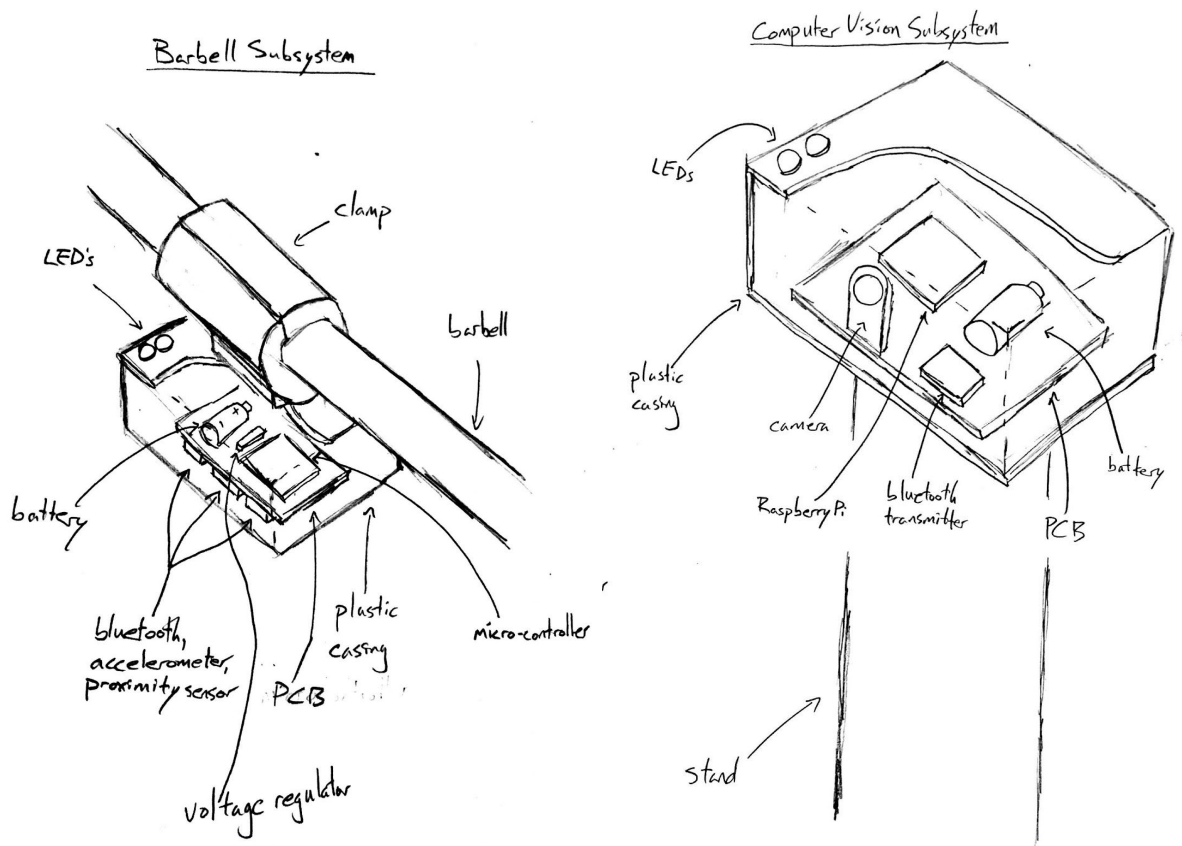 Barbell Subsystem
clamp
LED's
barbell
battery
bluetooth,
accelerometer,
proximity sensor
PCB
plastic
casing
micro-controller
voltage regulator
Computer Vision Subsystem
LEDs
plastic
casing
camera
Raspberry Pi
bluetooth
transmitter
PCB
battery
stand